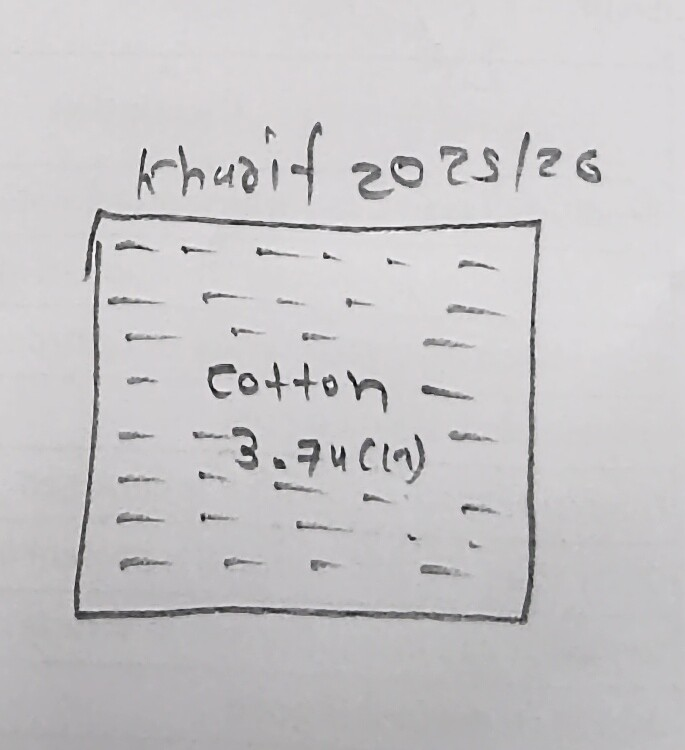 Kharif 2025/26
Cotton
3.74(ח)